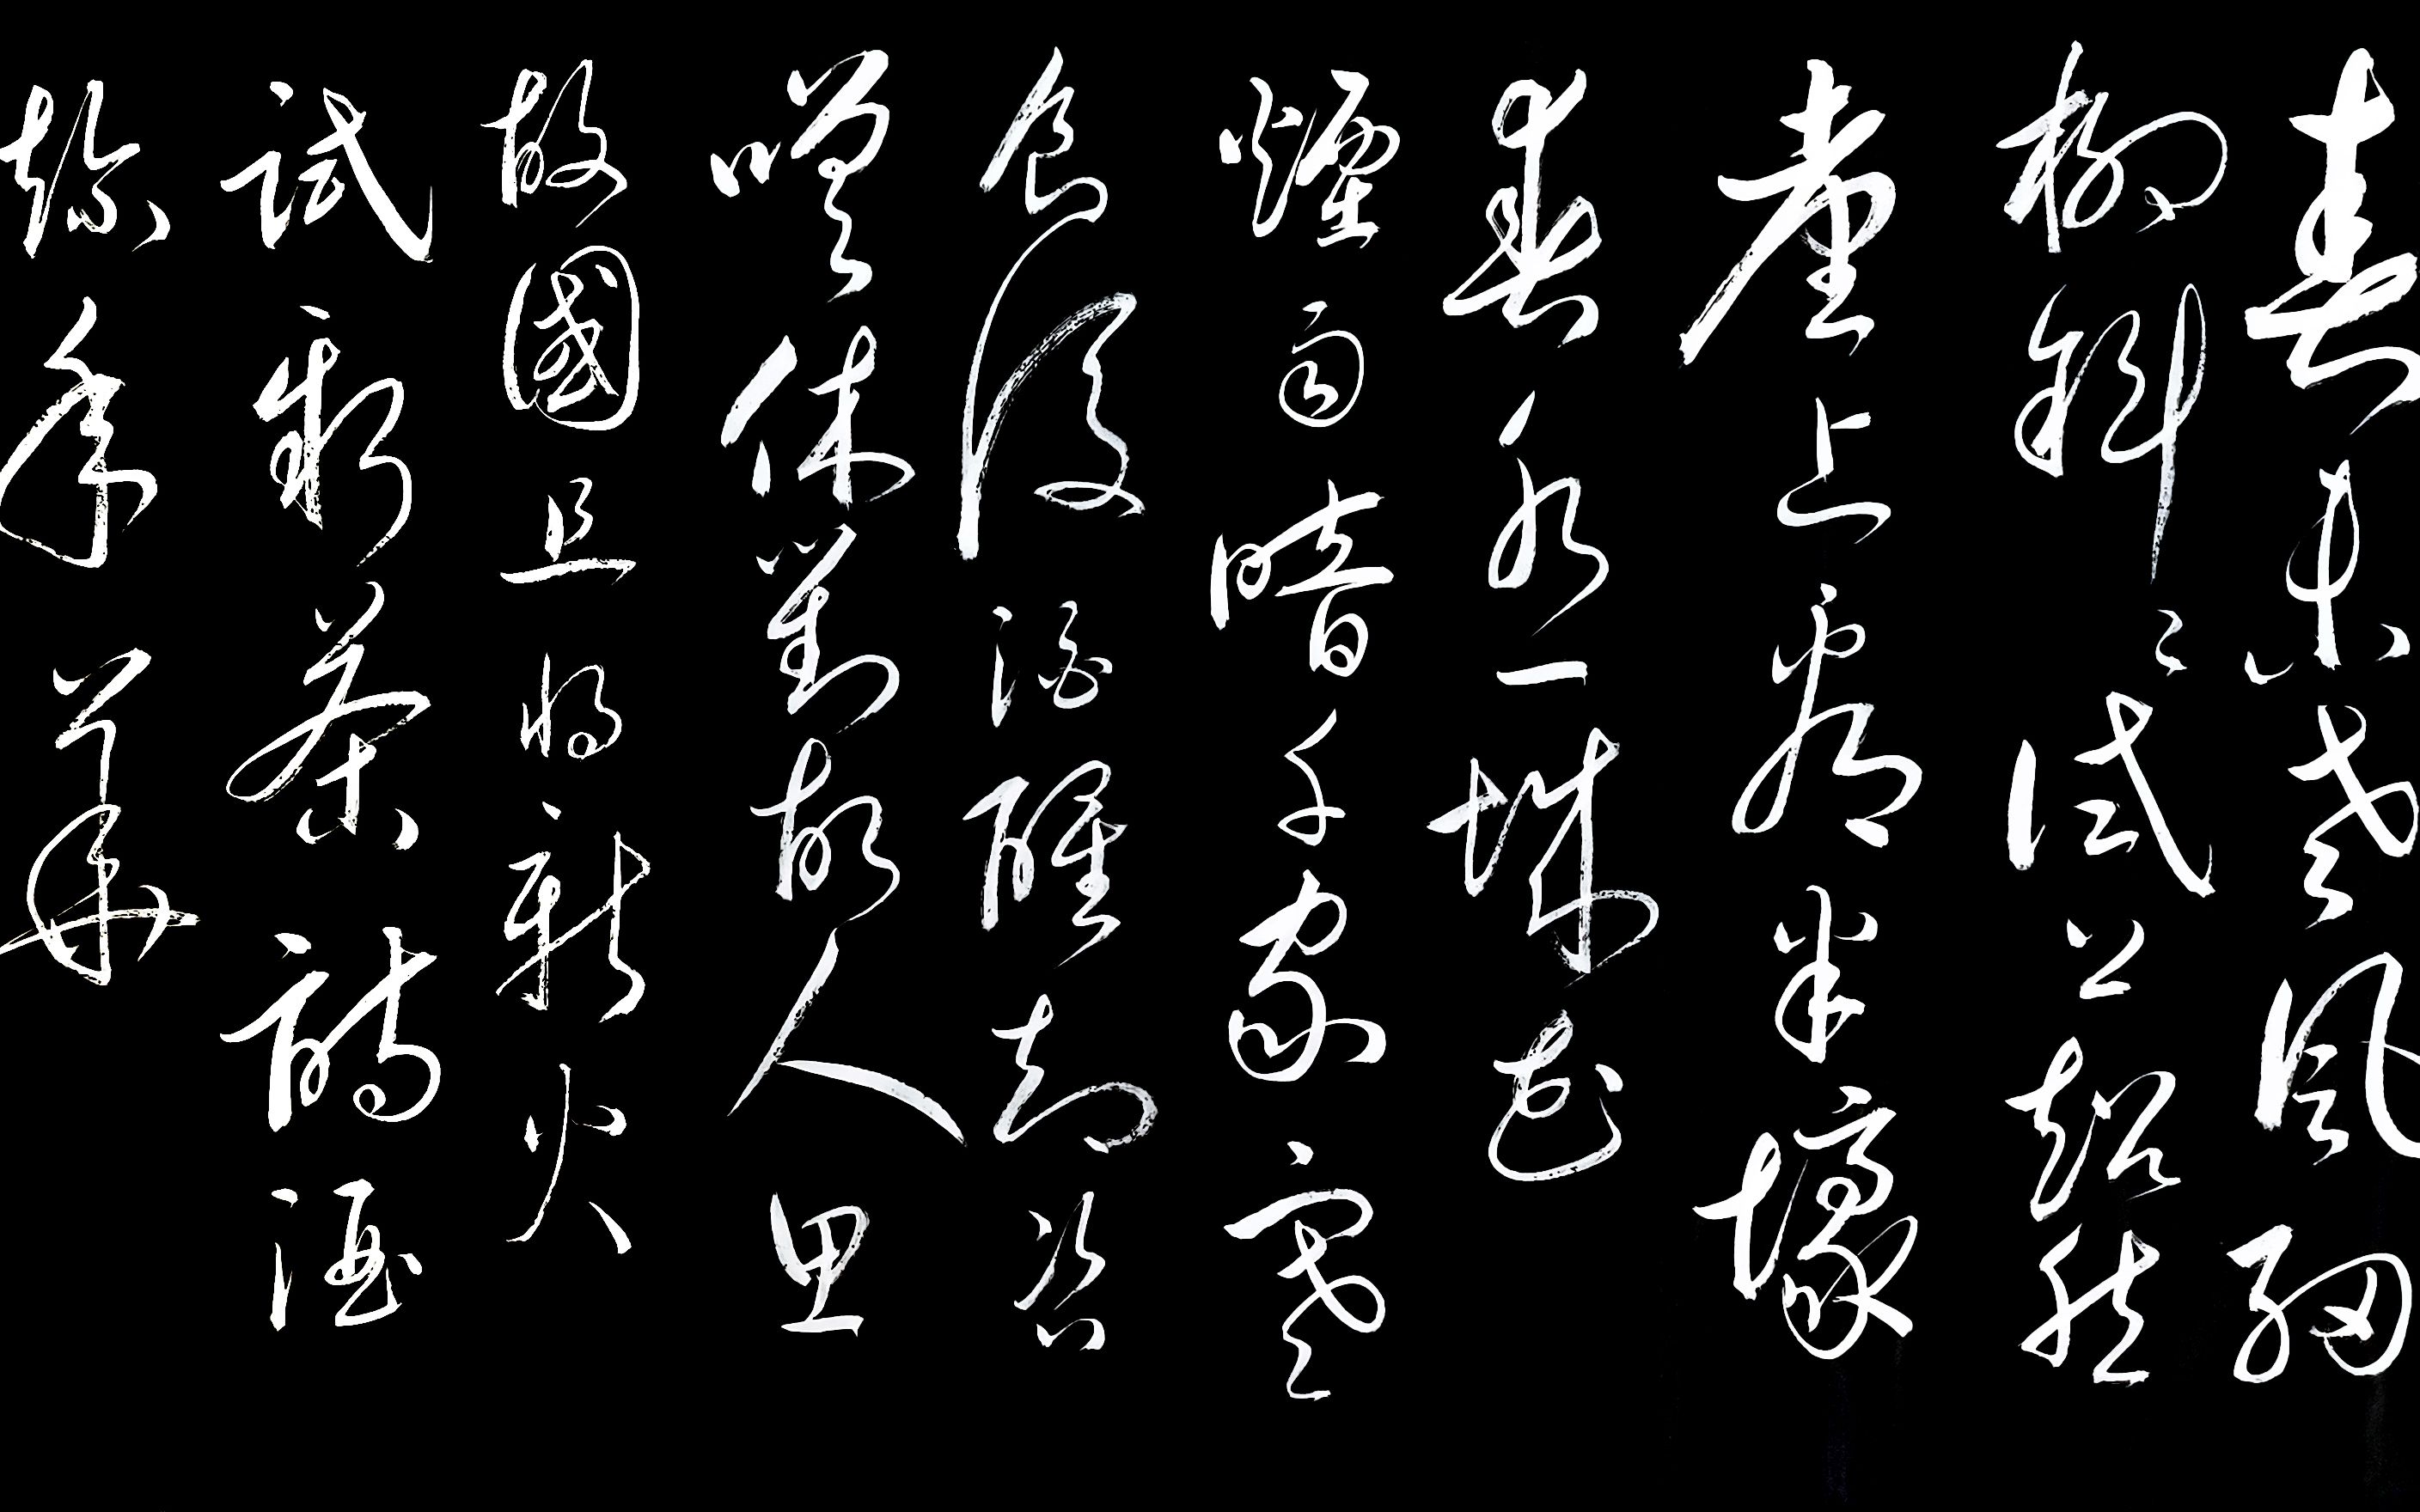 春未老風細
柳斜〻試上超然
臺上看半壕
春水一城花
煙雨暗千家寒
食後酒醒却咨
嗟休對故人思
故國且將新火
試新茶詩酒
趁年華